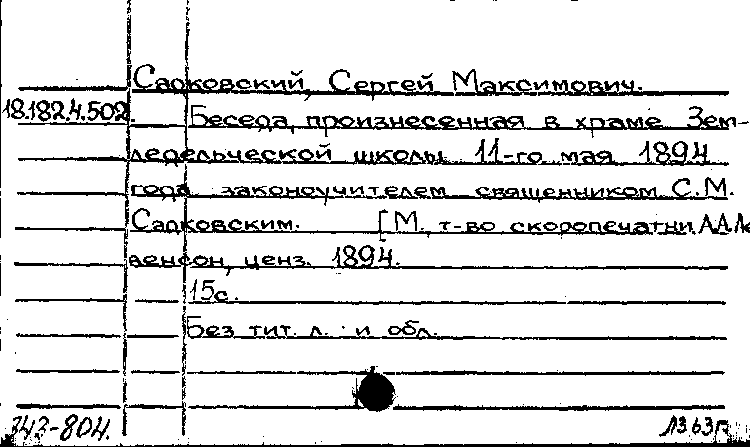 Садковский, Сергей Максимович.
18.182.4.502. Беседа, произнесенная в храме Зем-
ледельческой школы 11-го мая 1894
года законоучителем священником С.М.
Садковским. [М., т-во скоропечатни А.А. Ле
венсон, ценз. 1894.
15с.
Без тит. л. и обл.
343-804. 1363г